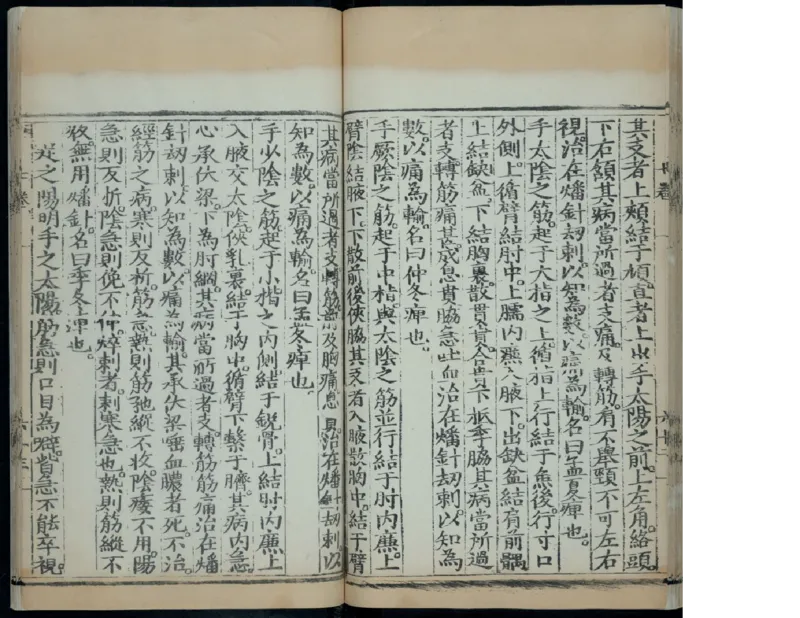 其支者上頰結于頄直者上出手太陽之前上左角絡頭
下右頷其病當所過者支痛及轉筋肩不舉頸不可左右
視治在燔針刼刺以知為數以痛為輸名曰孟夏痺也
手太陰之筋起于大指之上循指上行結于魚後行寸口
外側上循臂結肘中上臑內廉入腋下出缺盆結肩前髃
上結缺盆下結胸裏散貫賁合賁下抵季脇其病當所過
者支轉筋痛甚成息賁脇急吐血治在燔針刼刺以知為
數以痛為輸名曰仲冬痺也
手厥陰之筋起于中指與太陰之筋並行結于肘內廉上
臂陰結腋下下散前後俠脇其支者入腋散胸中結于臂
其病當所過者支轉筋前及胸痛息賁治在燔針刼刺以
知為數以痛為輸名曰孟冬痺也
手少陰之筋起于小指之內側結于銳骨上結肘內廉上
入腋交太陰俠乳裏結于胸中循臂下繫于臍其病內急
心承伏梁下為肘網其病當所過者支轉筋筋痛治在燔
針刼刺以知為數以痛為輸其承伏梁唾血膿者死不治
經筋之病寒則反折筋急熱則筋弛縱不收陰痿不用陽
急則反折陰急則俛不伸焠刺者刺寒急也熱則筋縱不
收無用燔針名曰季冬痺也
足之陽明手之太陽筋急則口目為噼眥急不能卒視